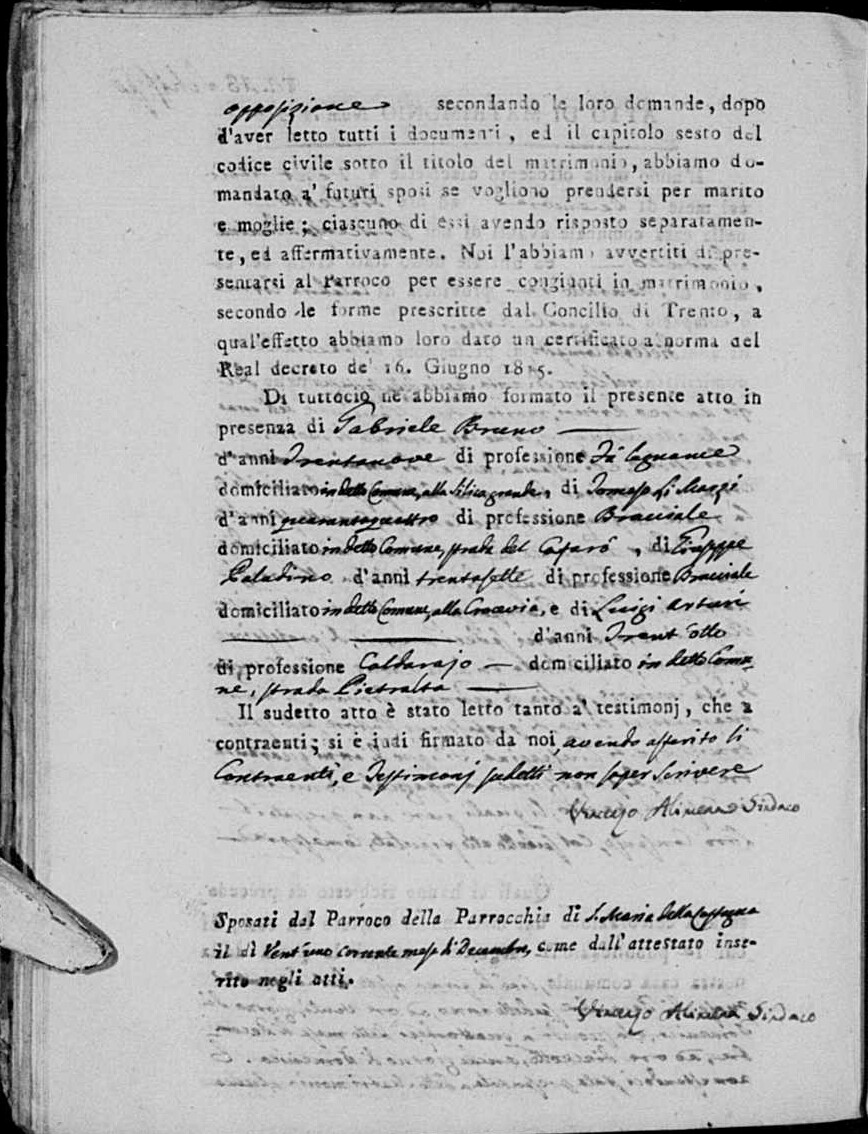 opposizione secondando le loro demande, dopo
d'aver letto tutti i documenti, ed il capitolo sesto del
codice civile sotto il titolo del matrimonio, abbiamo do-
mandato a' futuri sposi se vogliono prendersi per marito
e moglie; ciascuno di essi avendo risposto separatamen-
te, ed affermativamente. Noi l'abbiamo avvertiti di pre-
sentarsi al Parroco per essere congiunti in matrimonio,
secondo le forme prescritte dal Concilio di Trento, a
qual'effetto abbiamo loro dato un certificato a norma del
Real decreto de' 16. Giugno 1815.
Di tuttociò ne abbiamo formato il presente atto in
presenza di Gabriele Bruno
d'anni trentanove di professione
domiciliato in detto Comune, alla Silica grande, di Tomaso Li Marzi
d'anni quarantaquattro di professione Bracciale
domiciliato in detto Comune, strada del Cafarò, di Giuseppe
Paladino d'anni trentasette di professione Bracciale
domiciliato in detto Comune, alla Crocevia, e di Luigi Arturi
d'anni Trent'otto
di professione Caldarajo domiciliato in detto Comu-
ne, strada Pietralta
Il sudetto atto è stato letto tanto a' testimonj, che a
contraenti; si è indi firmato da noi, avendo asserito li
Contraenti, e Testimonj sudetti non saper scrivere
Vincenzo Alimena Sindaco
Sposati dal Parroco della Parrocchia di S. Maria della
il dì Vent'uno corrente mese di Decembre, come dall'attestato inse-
rito negli atti.
Vincenzo Alimena Sindaco